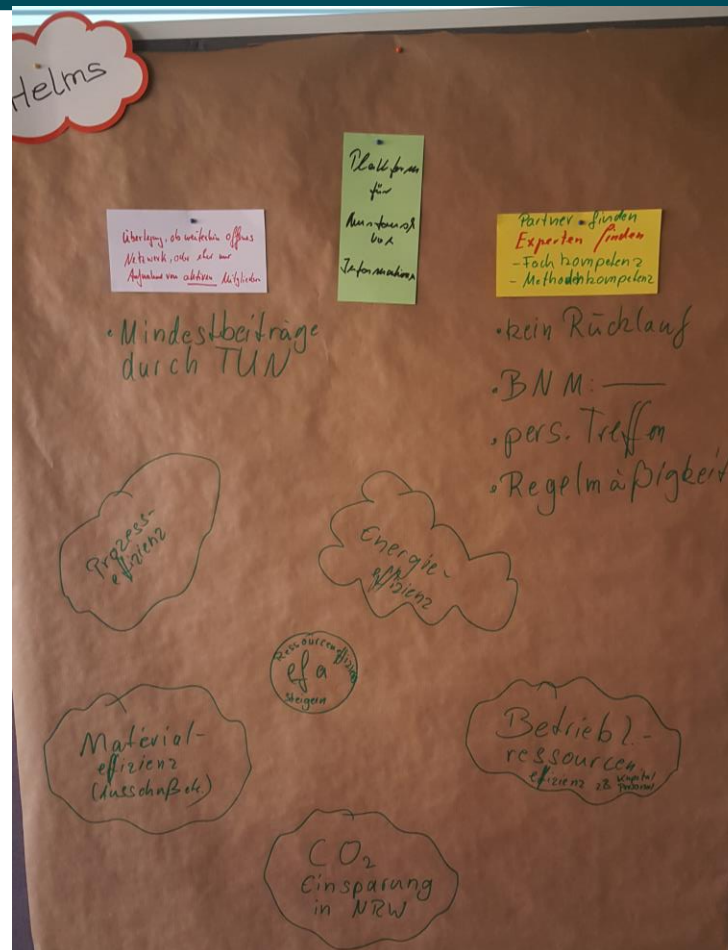 Helms
Plattform
für
Austausch
von
Informationen
Überlegung, ob weiterhin offenes
Netzwerk, oder eher nur
Aufnahme von aktiven Mitgliedern
Partner finden
Experten finden
- Fachkompetenz
- Methodenkompetenz
• Mindestbeiträge
durch TUN
• kein Rücklauf
• BNM: —
• pers. Treffen
• Regelmäßigkeit
Prozess-
effizienz
Energie-
effizienz
Ressourceneffizienz
efa
steigern
Material-
effizienz
(Ausschuß etc.)
Betriebl.-
ressourcen
effizienz zB Kapital
Personal
CO₂
Einsparung
in NRW